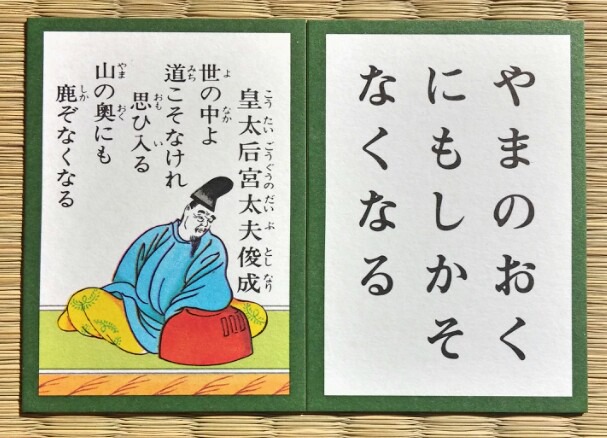 皇太后宮太夫俊成
こうたいごうぐうのだいぶとしなり
世の中よ
よなか
道こそなけれ
みち
思ひ入る
おもい
山の奥にも
やまおく
鹿ぞなくなる
しか
やまのおく
にもしかそ
なくなる